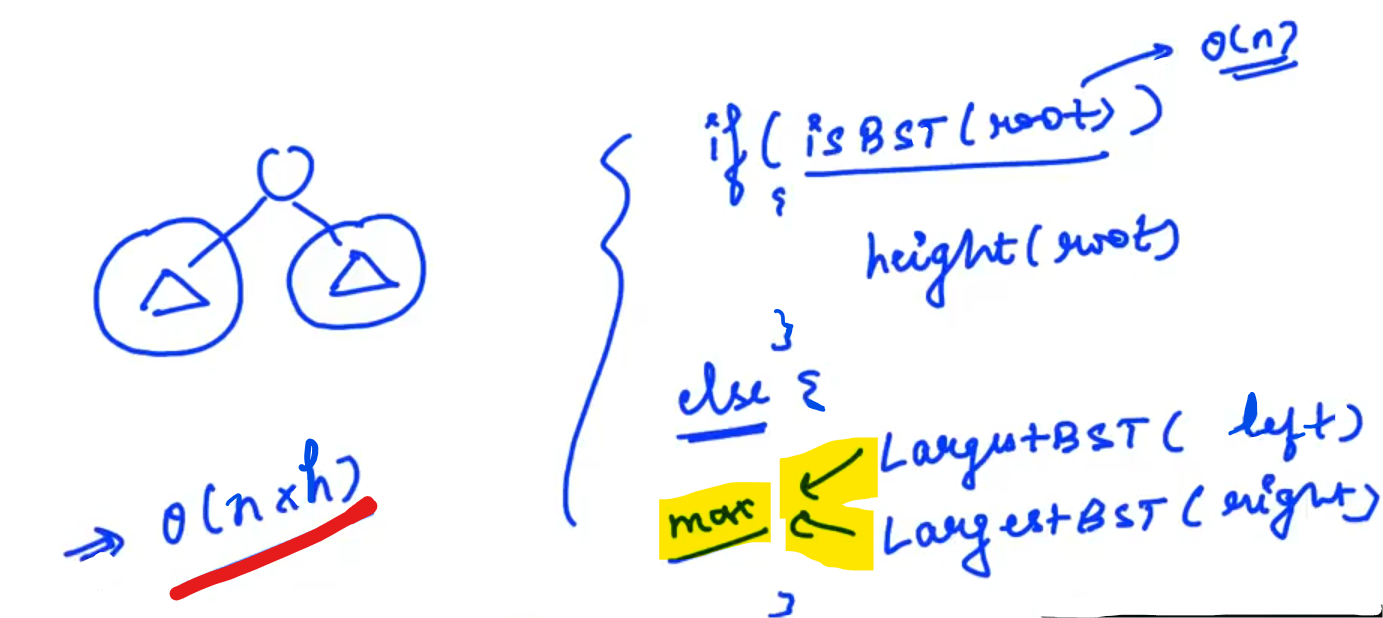 O(n)
if ( isBST (root) )
{
height (root)
}
else {
LargestBST ( left)
max
LargestBST ( right)
}
⇒ O(n×h)